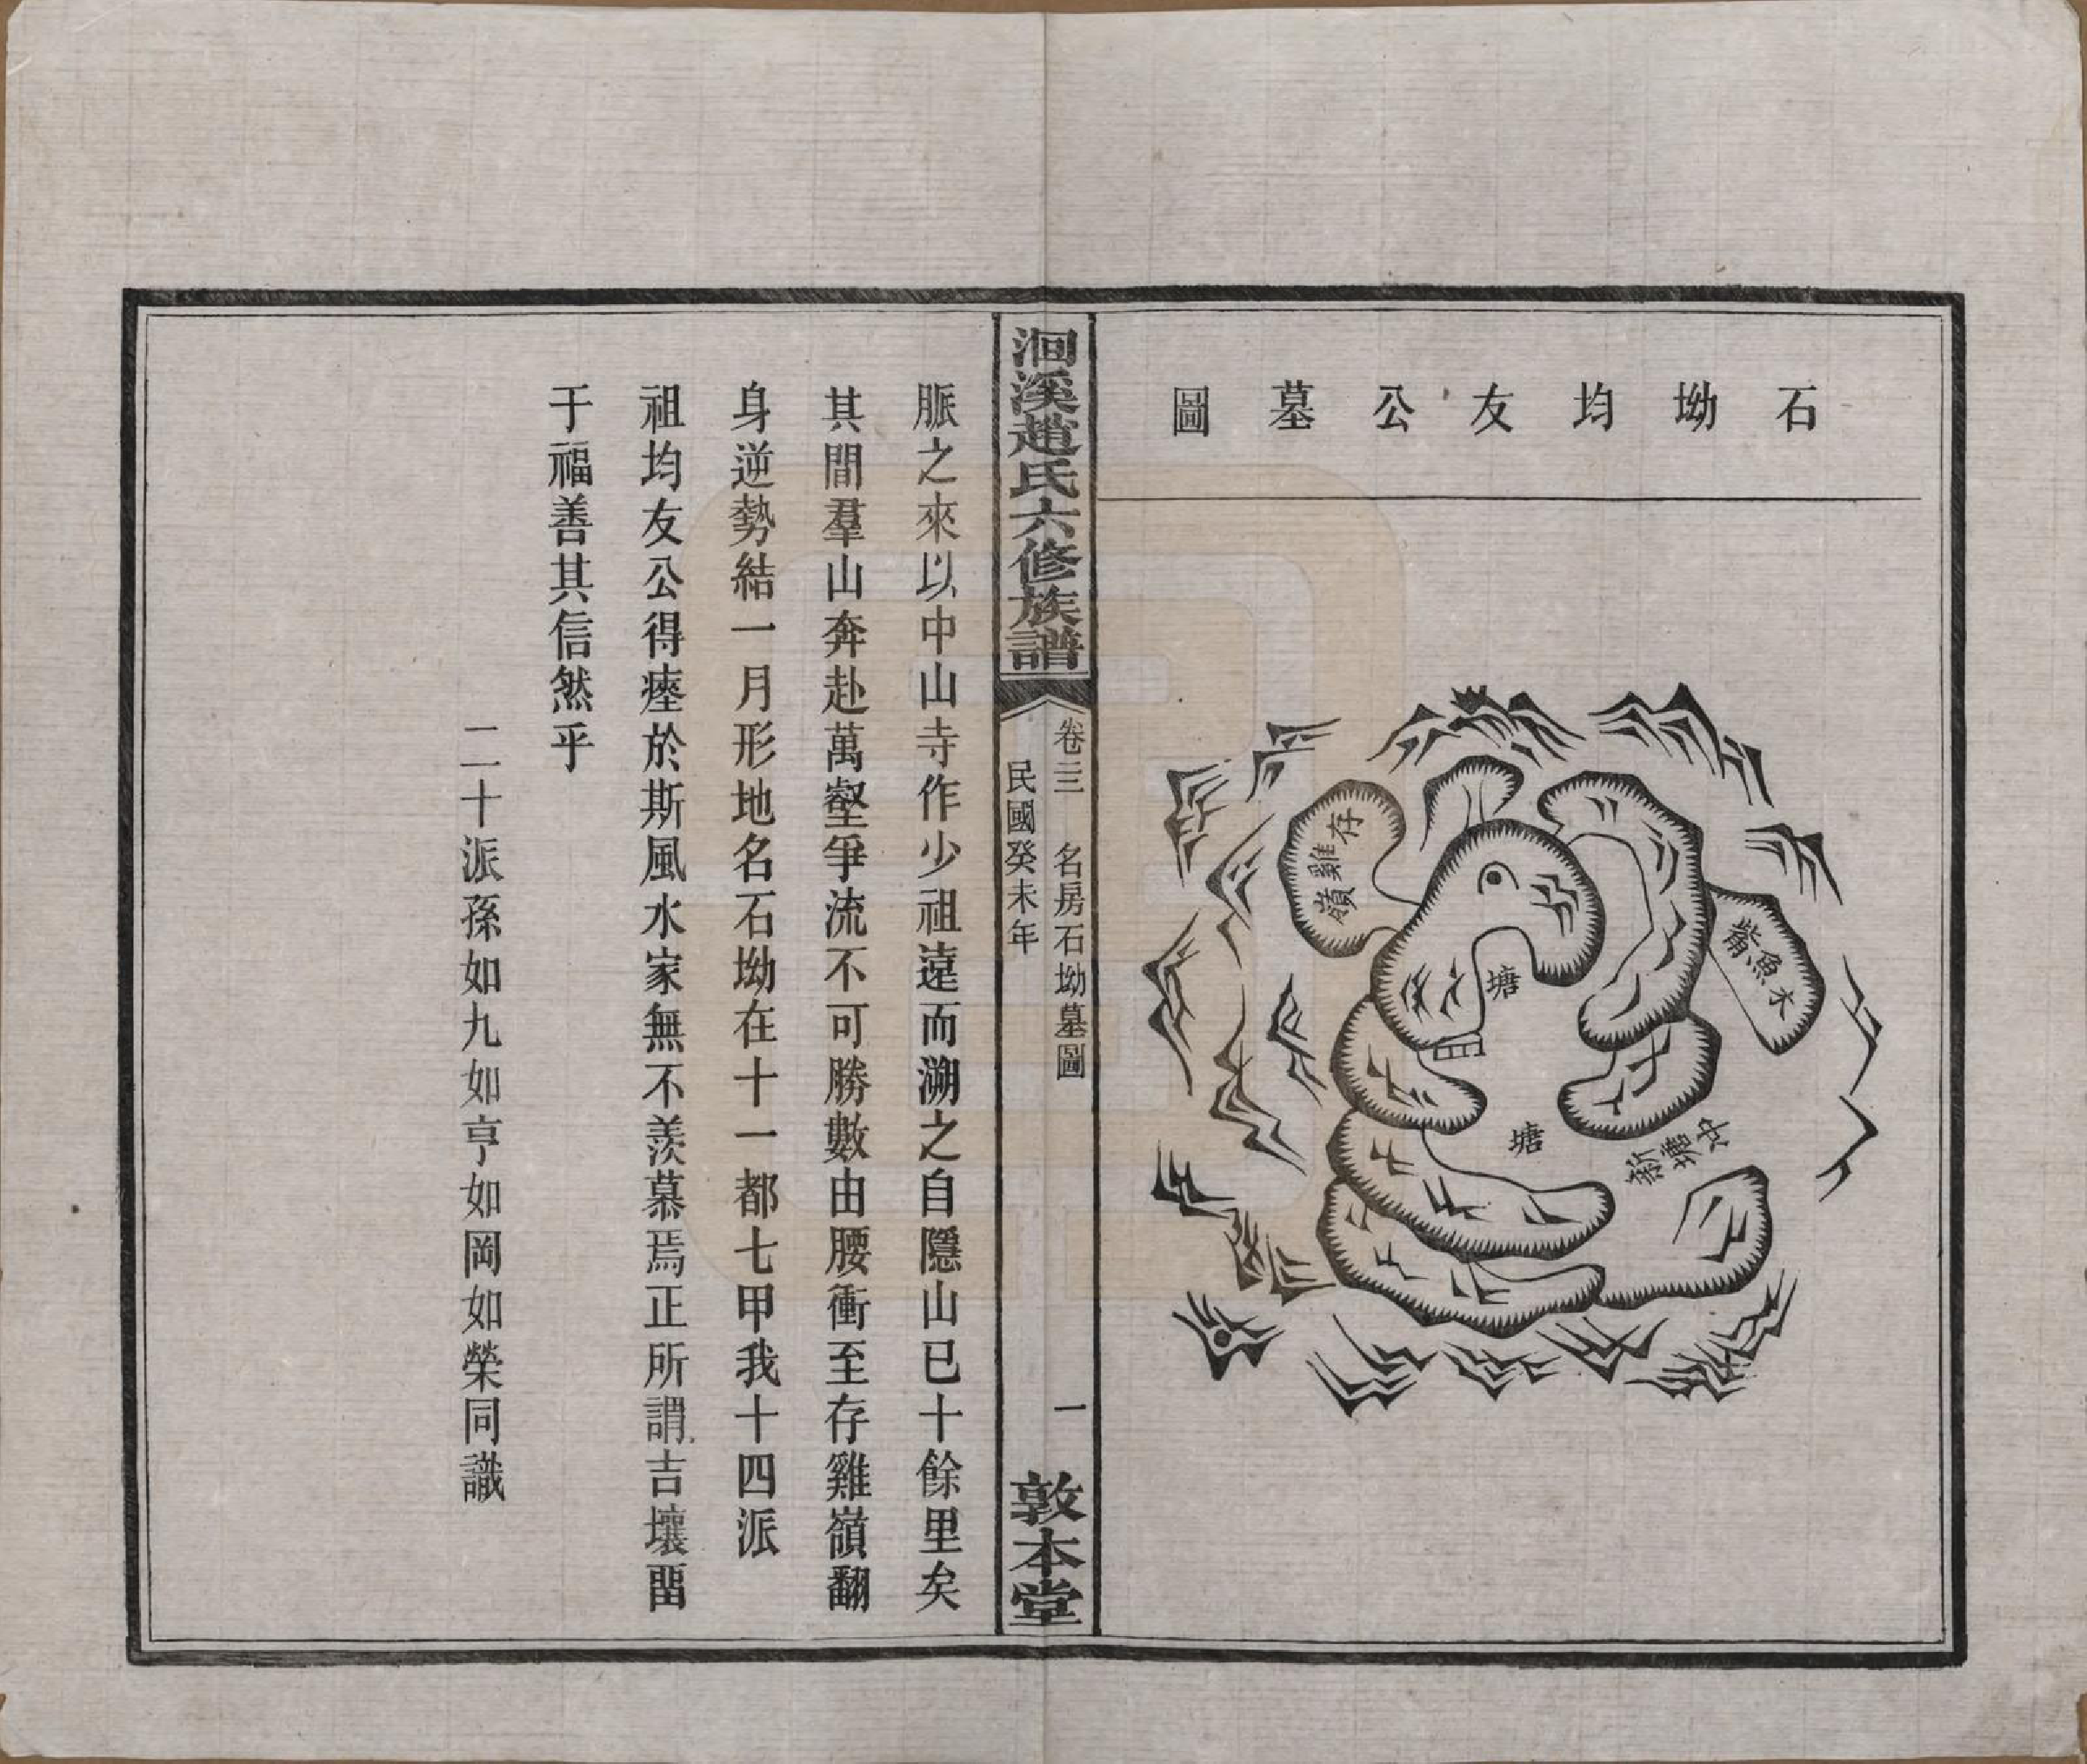 石坳均友公墓圖
存雞嶺
木魚觜
塘
塘
新塘冲
洄溪趙氏六修族譜
卷三 名房石坳墓圖 一
民國癸未年
敦本堂
脈之來以中山寺作少祖遠而溯之自隱山已十餘里矣
其間羣山奔赴萬壑爭流不可勝數由腰衝至存雞嶺翻
身逆勢結一月形地名石坳在十一都七甲我十四派
祖均友公得瘞於斯風水家無不羨慕焉正所謂吉壤畱
于福善其信然乎
二十派孫如九如亨如岡如榮同識